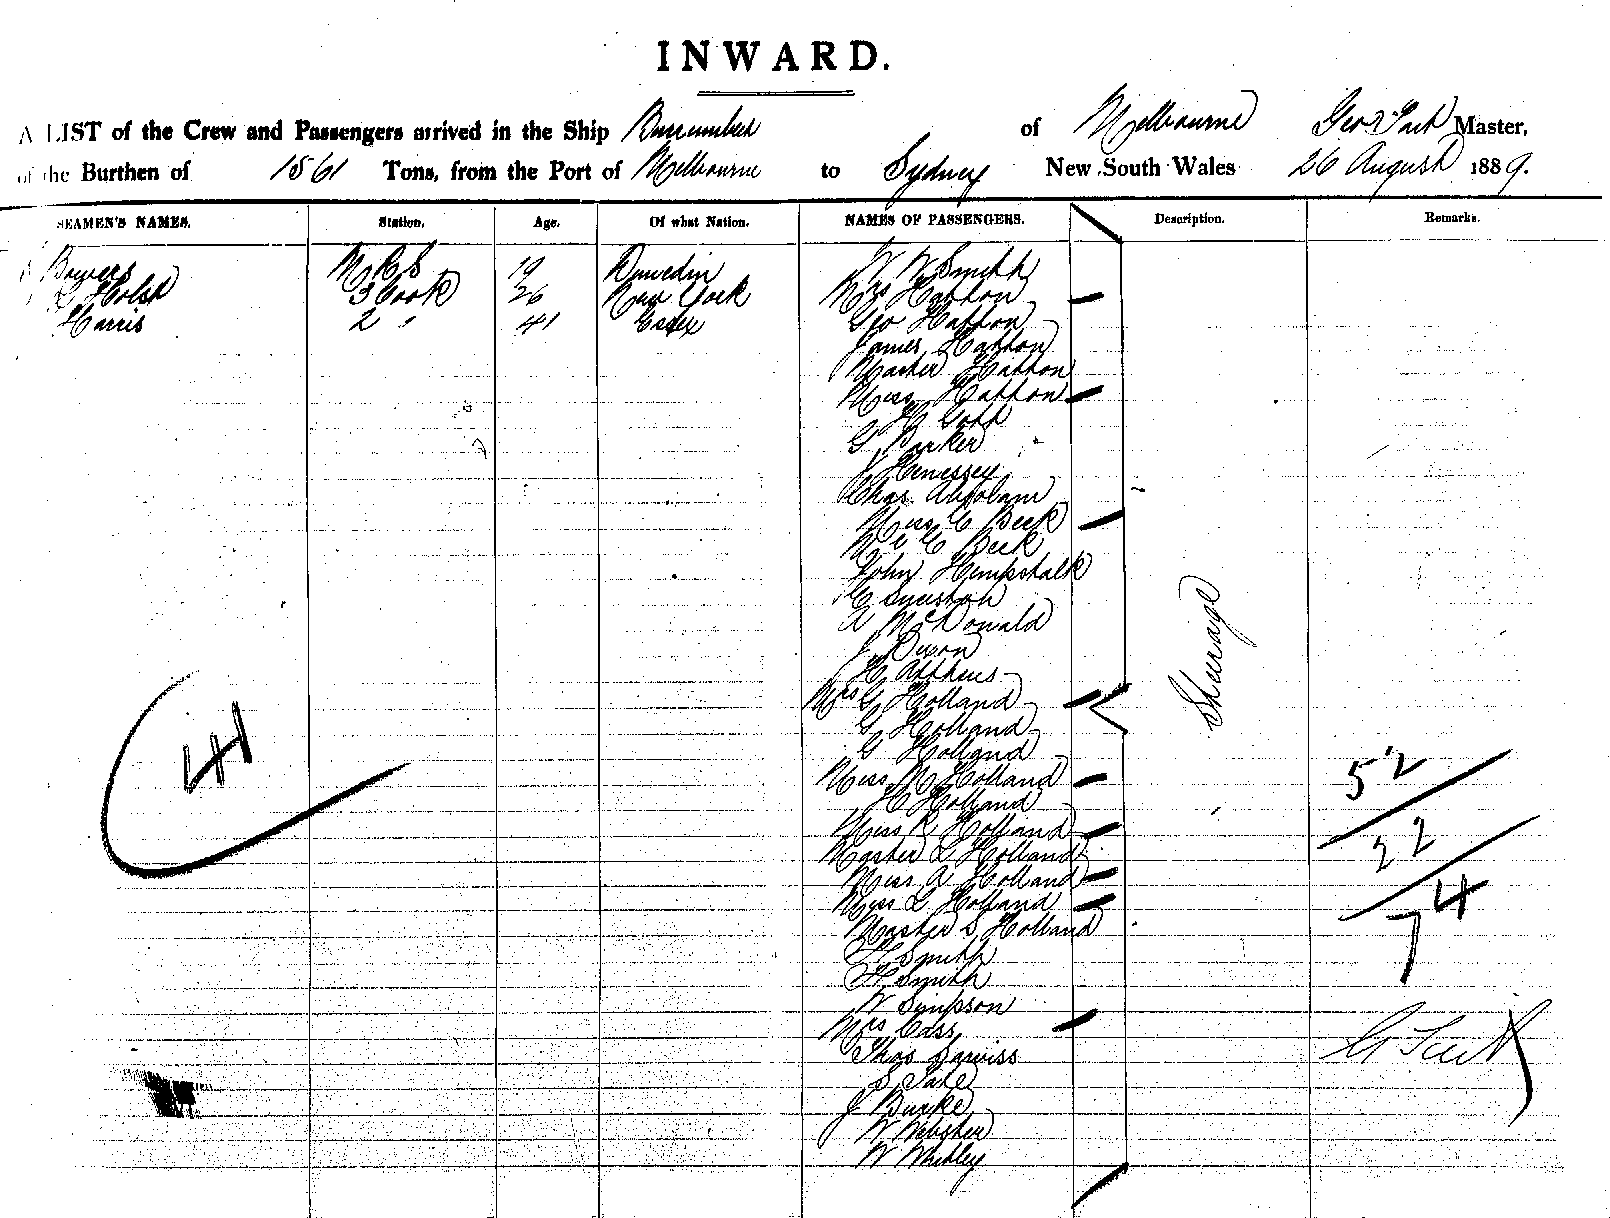 INWARD.
A LIST of the Crew and Passengers arrived in the Ship Burrumbeet of Melbourne Master,
of the Burthen of 1561 Tons, from the Port of Melbourne to Sydney New South Wales 26 August 1889.
SEAMEN'S NAMES. Station. Age. Of what Nation. NAMES OF PASSENGERS. Description. Remarks.
Bowers M R S 19 Dunedin W W Smith
Holst 3 Cook 26 New York Mrs Hatton
Harris 2 " 41 Essex Geo Hatton
James Hatton
Master Hatton
Miss Hatton
H Gott
G Parker
J Henessey
Chas. Absolam
Miss C Beek
C Beek
John Hempstalk
C
A McDonald
J Dixon
H
Mrs G Holland
G Holland
G Holland
Miss M Holland
H Holland
Miss R Holland
Master L Holland
Miss A Holland
Miss L Holland
Master S Holland
H Smith
H Smith
W Simpson
Mrs Cass
Thos
S Tate
J Burke
W Webster
W Whitley
Steerage
41
52
22
74